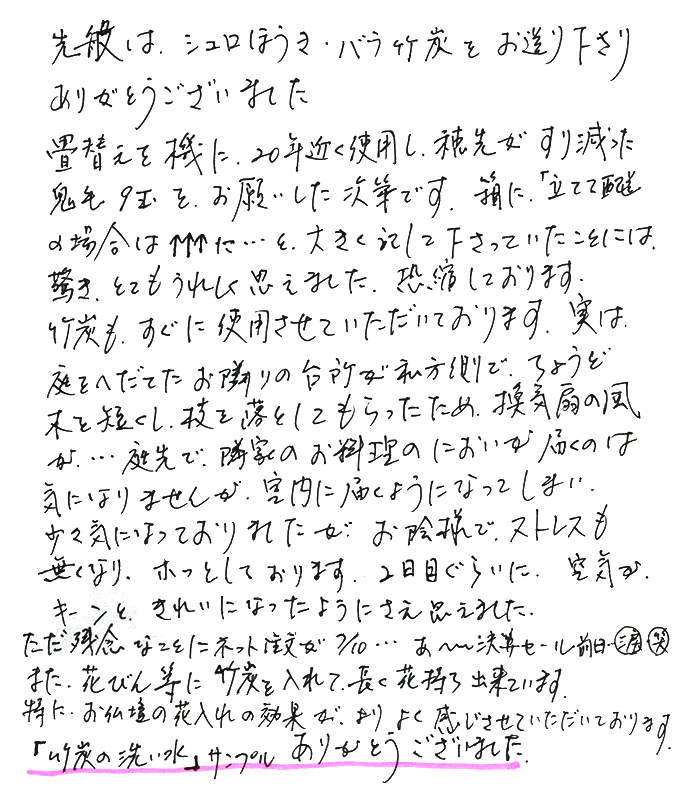 先般は、シュロほうき・バラ竹炭をお送り下さり
ありがとうございました
畳替えを機に、20年近く使用し、穂先がすり減った
鬼毛9玉を、お願いした次第です。箱に、「立てて配送
の場合は↑↑↑に…と、大きく記して下さっていたことには、
驚き、とてもうれしく思えました。恐縮しております。
竹炭も、すぐに使用させていただいております。実は、
庭をへだてたお隣りの台所が私方側で、ちょうど
木を短くし、枝を落としてもらったため、換気扇の風
が、…庭先で、隣家のお料理のにおいが届くのは
気になりませんが、室内に届くようになってしまい、
少々気になっておりましたが お陰様で、ストレスも
無くなり、ホッとしております。2日目ぐらいに、空気が、
キーンと、きれいになったようにさえ思えました。
ただ残念なことにネット注文が 7/10…あ〜〜決算セール前日…涙 笑
また、花びん等に竹炭を入れて、長く花持ち出来ています。
特に、お仏壇の花入れの効果が、より よく感じさせていただいております。
「竹炭の洗い水」サンプル ありがとうございました。